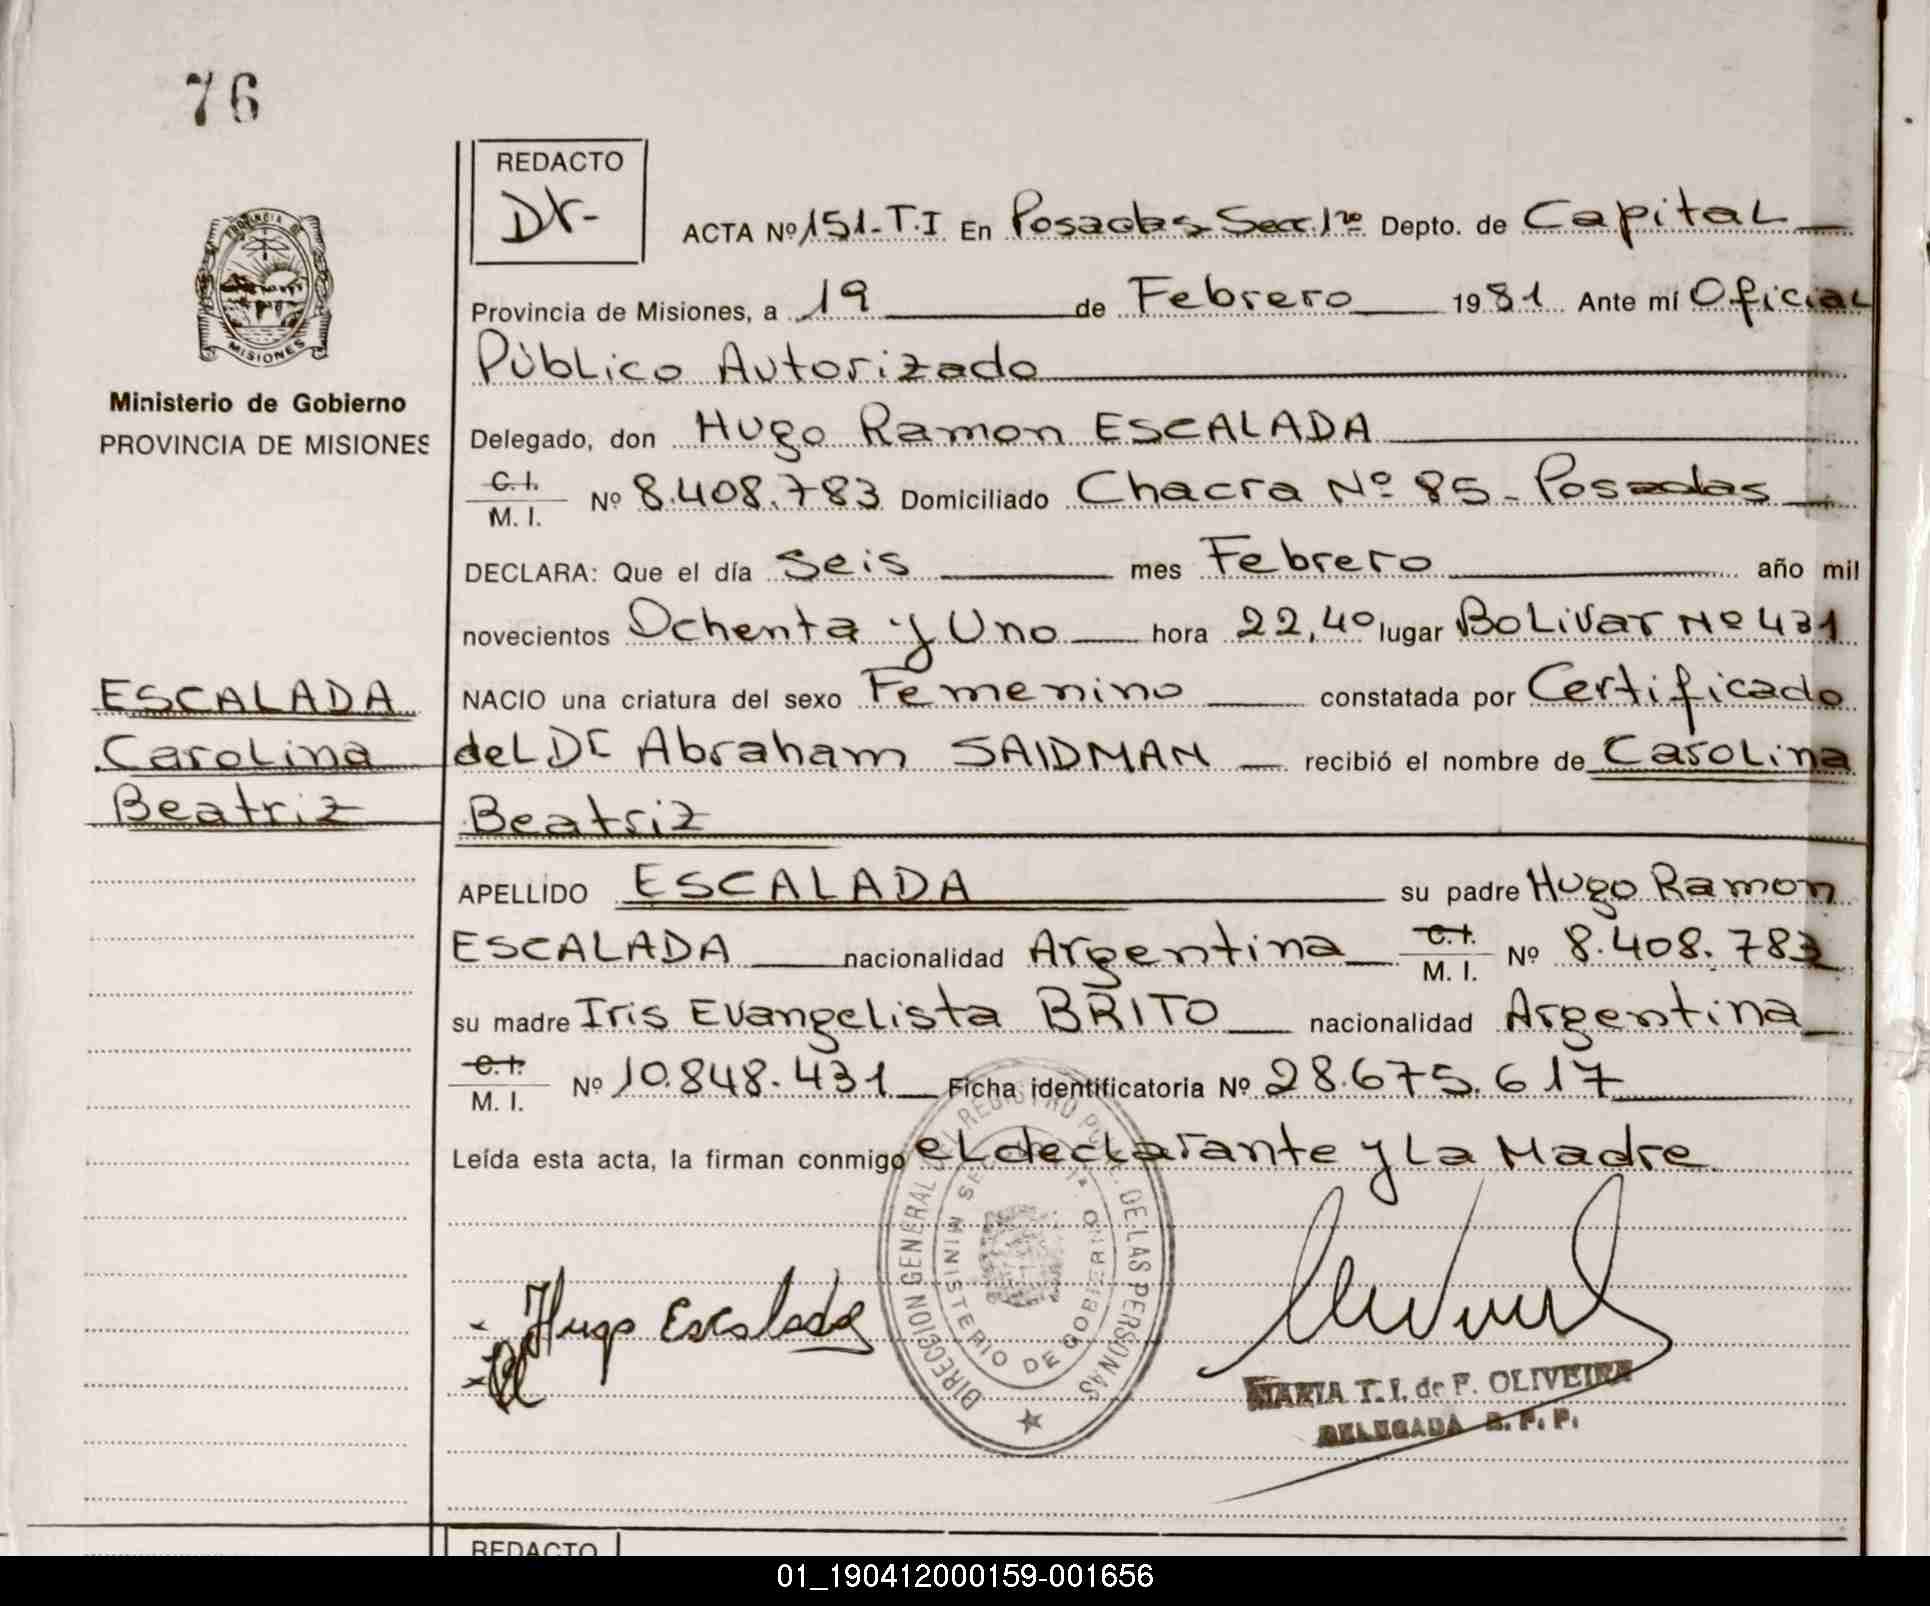 76
REDACTO
Dr-
ACTA Nº 151-T.I En Posadas Secc. 1ra Depto. de Capital
PROVINCIA DE
MISIONES
Provincia de Misiones, a 19 de Febrero 1981 Ante mí Oficial
Público Autorizado
Ministerio de Gobierno
PROVINCIA DE MISIONES
Delegado, don Hugo Ramon ESCALADA
C.I.
M. I. Nº 8.408.783 Domiciliado Chacra Nº 85 - Posadas
DECLARA: Que el día Seis mes Febrero año mil
novecientos Ochenta y Uno hora 22,40 lugar Bolivar Nº 431
ESCALADA
Carolina
Beatriz
NACIO una criatura del sexo Femenino constatada por Certificado
del Dr Abraham SAIDMAN recibió el nombre de Carolina
Beatriz
APELLIDO ESCALADA su padre Hugo Ramon
ESCALADA nacionalidad Argentina C.I.
M. I. Nº 8.408.783
su madre Iris Evangelista BRITO nacionalidad Argentina
C.I.
M. I. Nº 10.848.431 Ficha identificatoria Nº 28.675.617
Leída esta acta, la firman conmigo el declarante y la Madre
DIRECCION GENERAL DEL REGISTRO DE LAS PERSONAS
MINISTERIO DE GOBIERNO
Hugo Escalada
MARIA T. I. de F. OLIVEIRA
DELEGADA R. P. P.
REDACTO
01_190412000159-001656